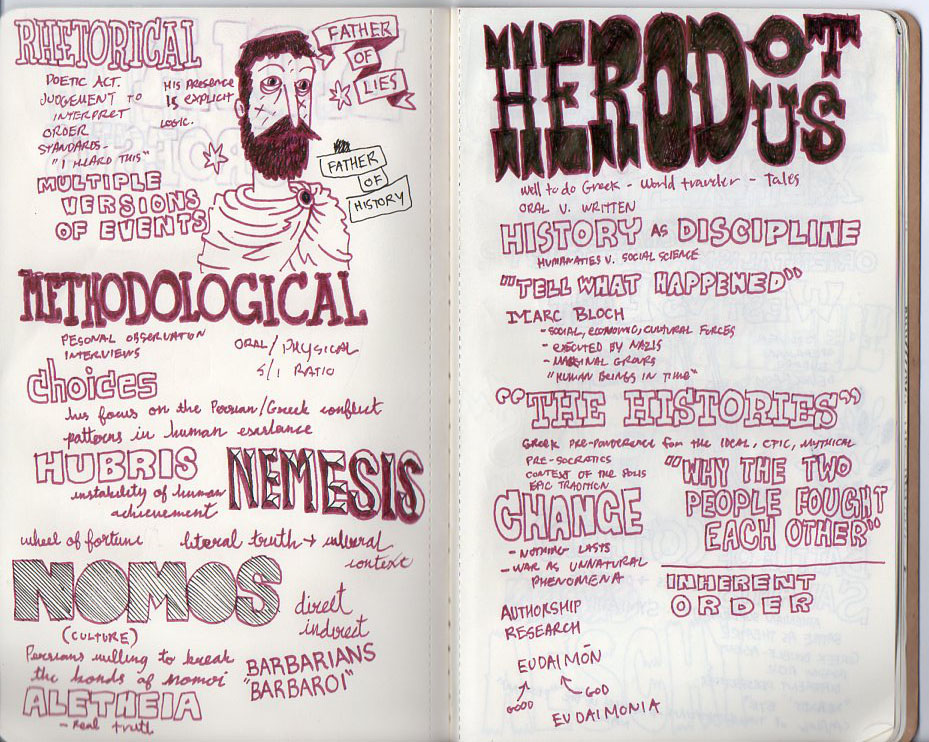 RHETORICAL
POETIC ACT.
JUDGEMENT TO
INTERPRET
ORDER
STANDARDS-
"I HEARD THIS"
HIS PRESENCE
IS EXPLICIT
LOGIC.
MULTIPLE
VERSIONS
OF EVENTS
FATHER
OF
LIES
FATHER
OF
HISTORY
METHODOLOGICAL
PESONAL OBSERVATION
INTERVIEWS
ORAL/PHYSICAL
S/I RATIO
choices
his focus on the Persian/Greek conflict
patterns in human existence
HUBRIS
instability of human
achievement
NEMESIS
wheel of fortune
literal truth +
context
NOMOS
(CULTURE)
direct
indirect
Persians willing to break
the bonds of nomoi
BARBARIANS
"BARBAROI"
ALETHEIA
- real truth
HERODOTUS
Well to do Greek - World traveler - Tales
ORAL V. WRITTEN
HISTORY AS DISCIPLINE
HUMANATIES V. SOCIAL SCIENCE
"TELL WHAT HAPPENED"
MARC BLOCH
- SOCIAL, ECONOMIC, CULTURAL FORCES
- EXECUTED BY NAZIS
- MARGINAL GROUPS
"HUMAN BEINGS IN TIME"
"THE HISTORIES"
GREEK PRE-PONDERENCE FOR THE IDEAL, EPIC, MYTHICAL
PRE-SOCRATICS
CONTEXT OF THE POLIS
EPIC TRADITION
CHANGE
- NOTHING LASTS
- WAR AS UNNATURAL
PHENOMENA
"WHY THE TWO
PEOPLE FOUGHT
EACH OTHER"
INHERENT
ORDER
AUTHORSHIP
RESEARCH
EUDAIMŌN
GOOD
GOD
EUDAIMONIA